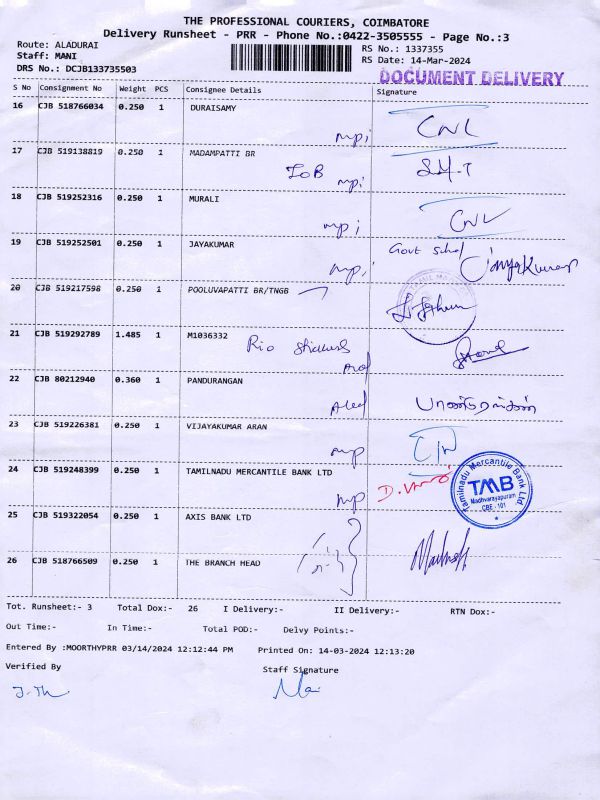 THE PROFESSIONAL COURIERS, COIMBATORE
Delivery Runsheet - PRR - Phone No.:0422-3505555 - Page No.:3
Route: ALADURAI
Staff: MANI
DRS No.: DCJB133735503
RS No.: 1337355
RS Date: 14-Mar-2024
DOCUMENT DELIVERY
S No Consignment No Weight PCS Consignee Details Signature
16 CJB 518766034 0.250 1 DURAISAMY
mpi CNL
17 CJB 519138819 0.250 1 MADAMPATTI BR
IOB mpi S.M.T
18 CJB 519252316 0.250 1 MURALI
mpi CNL
19 CJB 519252501 0.250 1 JAYAKUMAR
mpi Govt School Jayakumar
20 CJB 519217598 0.250 1 POOLUVAPATTI BR/TNGB
21 CJB 519292789 1.485 1 M1036332
Rio
22 CJB 80212940 0.360 1 PANDURANGAN
பாண்டுரங்கன்
23 CJB 519226381 0.250 1 VIJAYAKUMAR ARAN
mp
24 CJB 519248399 0.250 1 TAMILNADU MERCANTILE BANK LTD
mp D.
Tamilnadu Mercantile Bank Ltd
TMB
Madhvarayapuram
CBE - 101
25 CJB 519322054 0.250 1 AXIS BANK LTD
26 CJB 518766509 0.250 1 THE BRANCH HEAD
Tot. Runsheet:- 3 Total Dox:- 26 I Delivery:- II Delivery:- RTN Dox:-
Out Time:- In Time:- Total POD:- Delvy Points:-
Entered By :MOORTHYPRR 03/14/2024 12:12:44 PM Printed On: 14-03-2024 12:13:20
Verified By Staff Signature